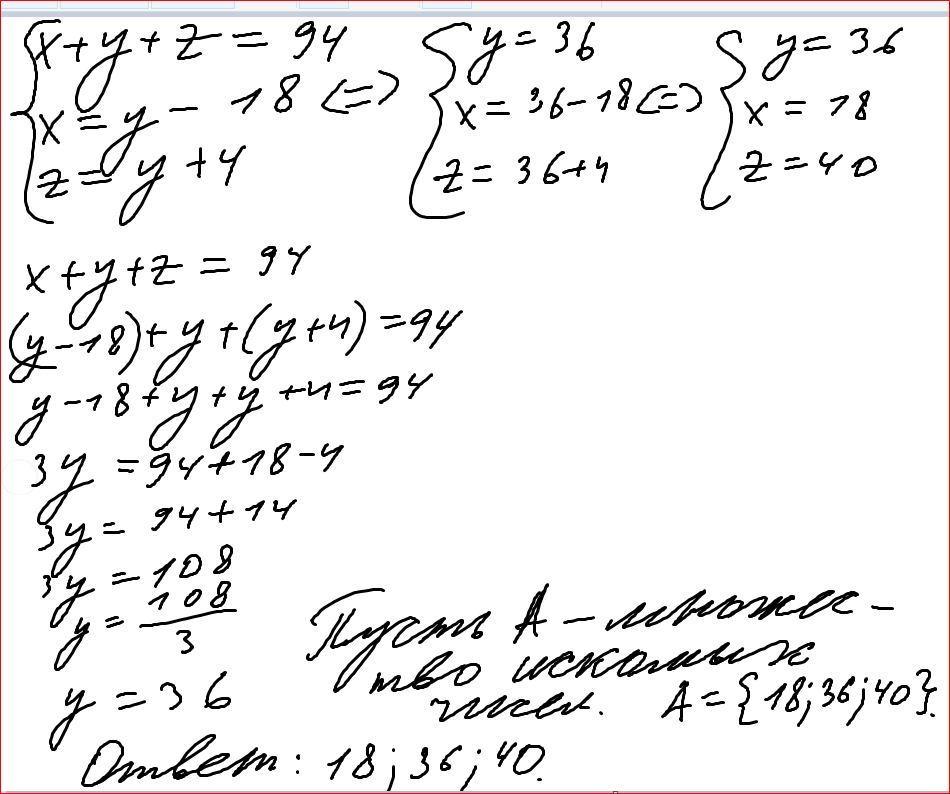 x+y+z = 94
x = y - 18 <=>
z = y + 4
y = 36
x = 36-18 <=>
z = 36+4
y = 36
x = 18
z = 40
x+y+z = 94
(y-18)+y+(y+4)=94
y-18+y+y+4=94
3y = 94+18-4
3y = 94+14
3y = 108
y = 108/3
y = 36
Пусть А - множес-
тво искомых
чисел. A = {18; 36; 40}.
Ответ: 18; 36; 40.